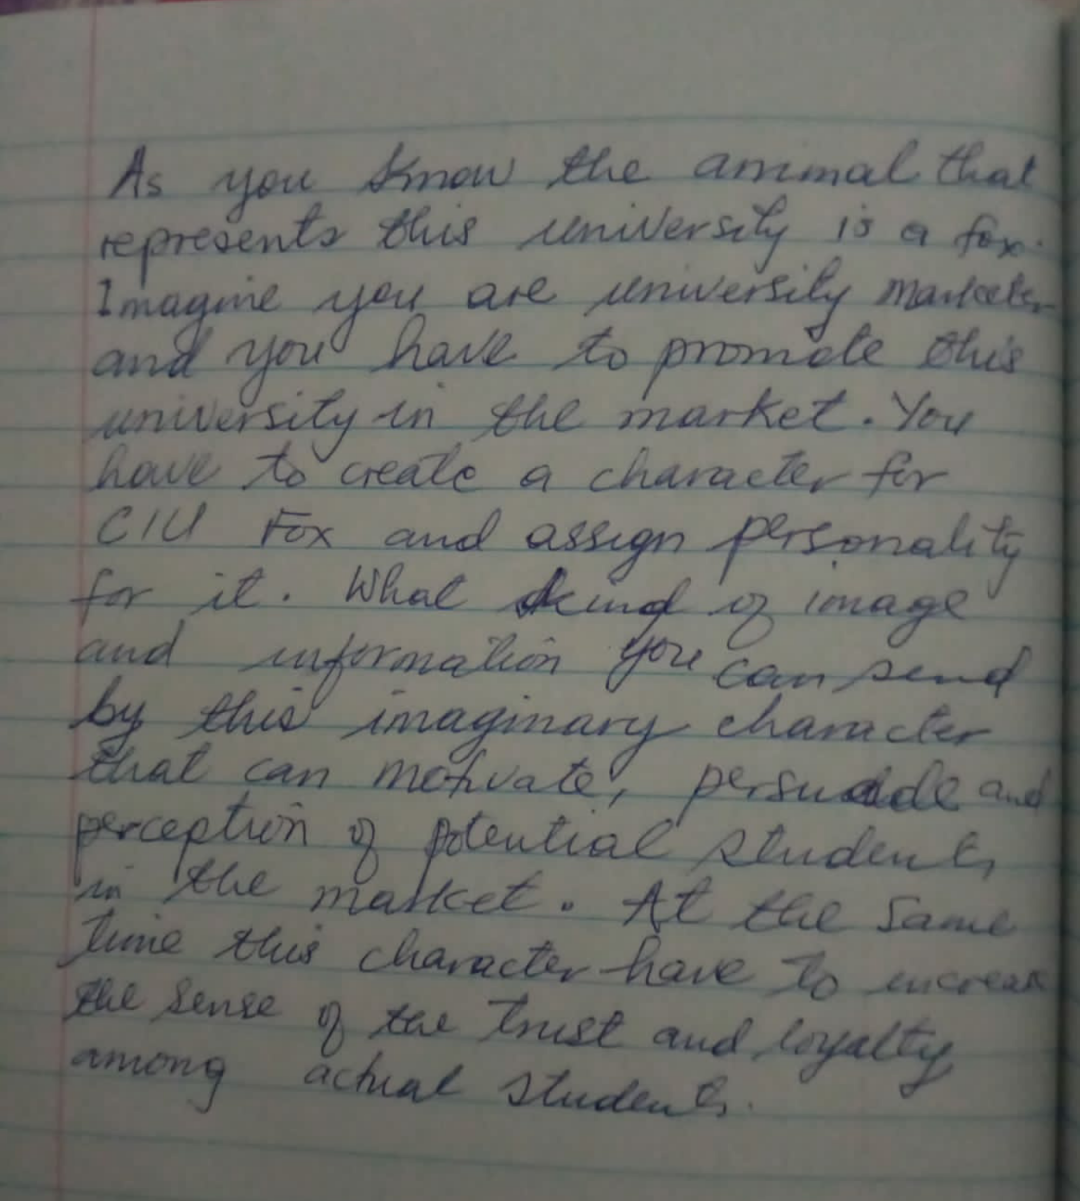 As you know the animal that
represents this university is a fox.
Imagine you are university marketer
and you have to promote this
university in the market. You
have to create a character for
CIU Fox and assign personality
for it. What kind of image
and information you can send
by this imaginary character
that can motivate, persuade and
perception of potential students
in the market. At the same
time this character have to increase
the sense of the trust and loyalty
among actual students.